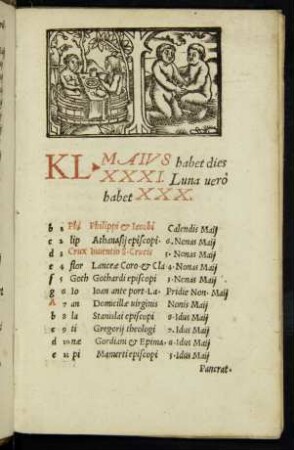 KL MAIVS habet dies
XXXI. Luna uerò
habet XXX.
b 1 Phi Philippi & Iacobi Calendis Maij
c 2 lip Athanasij episcopi 6. Nonas Maij
d 3 Crux Inuentio S. Crucis 5. Nonas Maij
e 4 flor Lanceæ Coro. & Cla 4. Nonas Maij
f 5 Goth Gothardi episcopi 3. Nonas Maij
g 6 Io Ioan ante port. La. Pridie Non. Maij
A 7 an Domicillæ virginis Nonis Maij
b 8 la Stanislai episcopi 8. Idus Maij
c 9 ti Gregorij theologi 7. Idus Maij
d 10 næ Gordiani & Epima. 6. Idus Maij
e 11 pi Mamerti episcopi 5. Idus Maij
Pancrat.